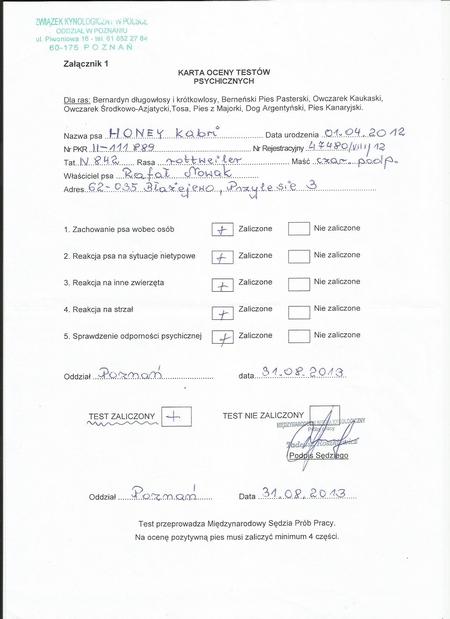 ZWIĄZEK KYNOLOGICZNY W POLSCE
ODDZIAŁ W POZNANIU
ul. Piwoniowa 16 - tel. 61 852 27 84
60-175 POZNAŃ
Załącznik 1
KARTA OCENY TESTÓW
PSYCHICZNYCH
Dla ras: Bernardyn długowłosy i krótkowłosy, Berneński Pies Pasterski, Owczarek Kaukaski,
Owczarek Środkowo-Azjatycki, Tosa, Pies z Majorki, Dog Argentyński, Pies Kanaryjski.
Nazwa psa HONEY Kabri Data urodzenia 01.04.2012
Nr PKR II-111 889 Nr Rejestracyjny 47480/VIII/12
Tat. N 842 Rasa rottweiler Maść czar. podp.
Właściciel psa Rafał Nowak
Adres 62-035 Błażejewo, Przylesie 3
1. Zachowanie psa wobec osób + Zaliczone Nie zaliczone
2. Reakcja psa na sytuacje nietypowe + Zaliczone Nie zaliczone
3. Reakcja na inne zwierzęta + Zaliczone Nie zaliczone
4. Reakcja na strzał + Zaliczone Nie zaliczone
5. Sprawdzenie odporności psychicznej + Zaliczone Nie zaliczone
Oddział Poznań data 31.08.2013
TEST ZALICZONY + TEST NIE ZALICZONY
MIĘDZYNARODOWY SĘDZIA KYNOLOGICZNY
Prób Pracy
Podpis Sędziego
Oddział Poznań Data 31.08.2013
Test przeprowadza Międzynarodowy Sędzia Prób Pracy.
Na ocenę pozytywną pies musi zaliczyć minimum 4 części.